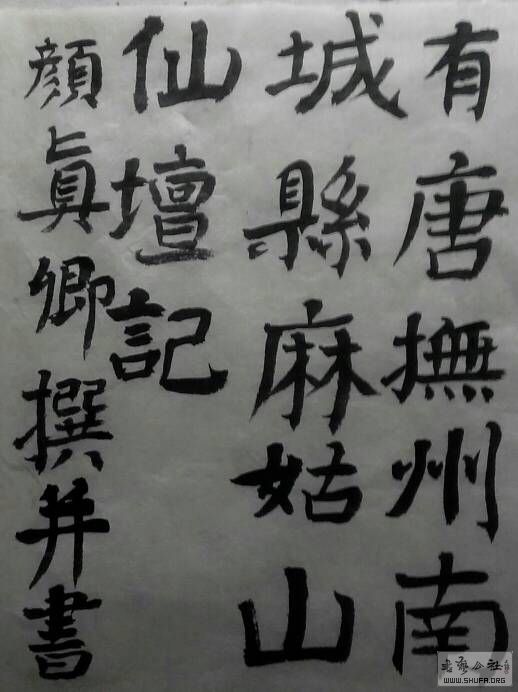 有唐撫州南
城縣麻姑山
仙壇記
顏眞卿撰并書
WWW.SHUFA.ORG